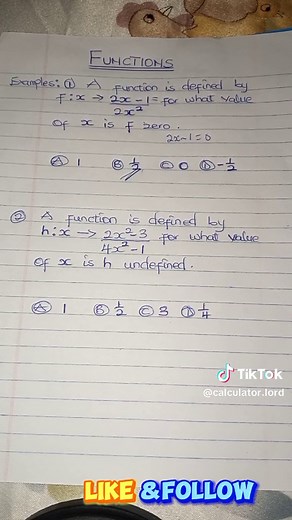 FUNCTIONS
Examples: ① A function is defined by
f:x → 2x-1 = for what value
2x²
of x is f zero.
2x-1=0
Ⓐ 1 Ⓑ 1/2 Ⓒ 0 Ⓓ -1/2
② A function is defined by
h:x → 2x²-3 for what value
4x²-1
of x is h undefined.
Ⓐ 1 Ⓑ 1/2 Ⓒ 3 Ⓓ 1/4
TikTok
@calculator.lord
LIKE & FOLLOW